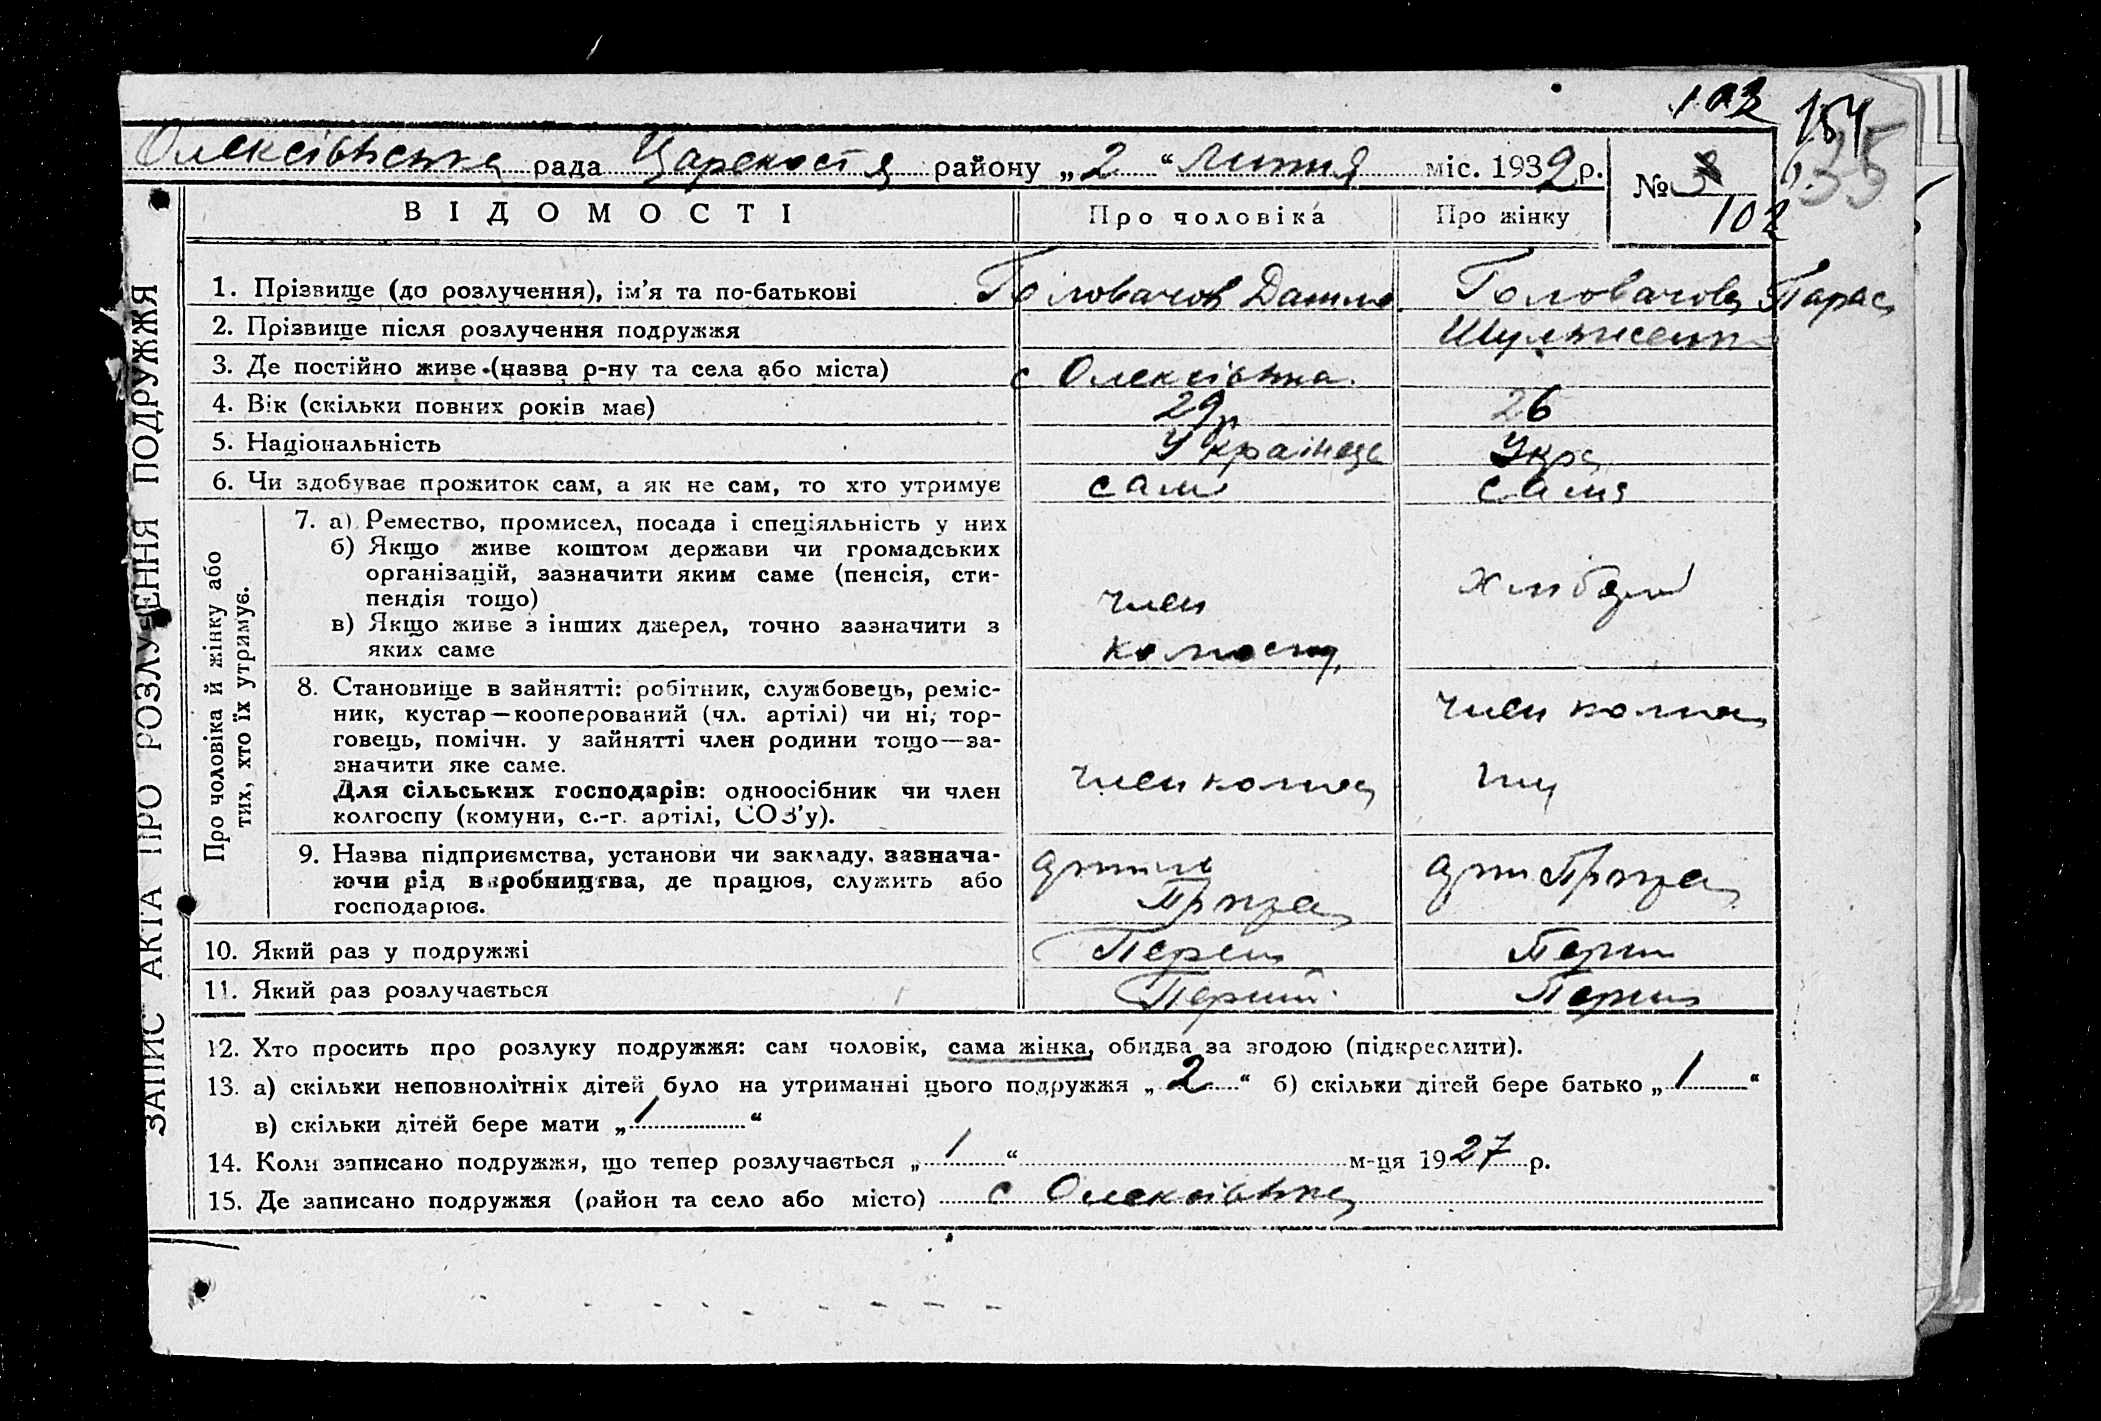 103 154
Олексівська рада района району „2“ Липня міс. 1932 р. № 3
102
35
ВІДОМОСТІ Про чоловіка Про жінку
ЗАПИС АКТА ПРО РОЗЛУЧЕННЯ ПОДРУЖЖЯ
1. Прізвище (до розлучення), ім'я та по-батькові Головачов Данило Головачова Парас
2. Прізвище після розлучення подружжя Шульженко
3. Де постійно живе (назва р-ну та села або міста) с Олексівка
4. Вік (скільки повних років має) 29 р 26
5. Національність Українець Укра
6. Чи здобуває прожиток сам, а як не сам, то хто утримує сам сама
Про чоловіка й жінку або
тих, хто їх утримує.
7. а) Ремество, промисел, посада і спеціяльність у них
б) Якщо живе коштом держави чи громадських
організацій, зазначити яким саме (пенсія, сти-
пендія тощо)
в) Якщо живе з інших джерел, точно зазначити з
яких саме
член
8. Становище в зайнятті: робітник, службовець, реміс-
ник, кустар—кооперований (чл. артілі) чи ні, тор-
говець, помічн. у зайнятті член родини тощо—за-
значити яке саме.
Для сільських господарів: одноосібник чи член
колгоспу (комуни, с.-г. артілі, СОЗ'у).
член
член
9. Назва підприємства, установи чи закладу, зазнача-
ючи рід виробництва, де працює, служить або
господарює.
10. Який раз у подружжі Перший Перш
11. Який раз розлучається Перший Перш
12. Хто просить про розлуку подружжя: сам чоловік, сама жінка, обидва за згодою (підкреслити).
13. а) скільки неповнолітніх дітей було на утриманні цього подружжя „2“ б) скільки дітей бере батько „1“
в) скільки дітей бере мати „1“
14. Коли записано подружжя, що тепер розлучається „1“ м-ця 1927 р.
15. Де записано подружжя (район та село або місто) с Олексівка